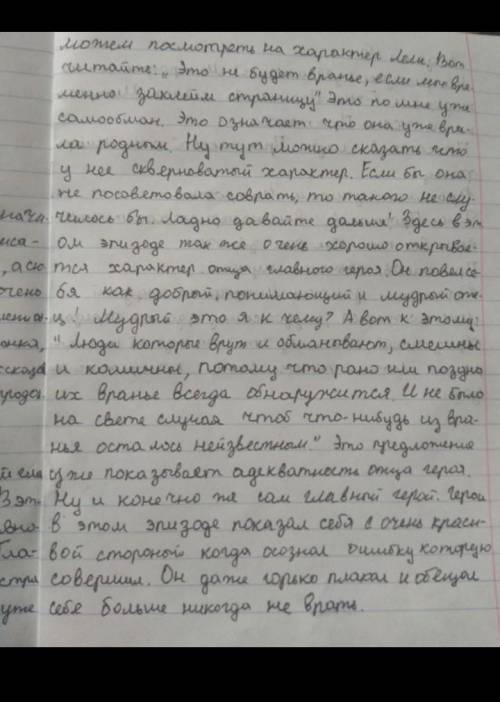 можем посмотреть на характер Лели. Вот
читайте: „Это не будет вранье, если мы вре-
менно заклеим страницу" Это по мне уже
самообман. Это означает что она уже вра-
ла родным. Ну тут можно сказать что
у нее скверноватый характер. Если бы она
не посоветовала соврать, то такого не слу-
нача- чилось бы. Ладно давайте дальше! Здесь в эт
иса- ом эпизоде так же очень хорошо открывае-
, а сю тся характер отца главного героя. Он повел се-
очень бя как добрый, понимающий и мудрый оте-
ц! Мудрый это я к чему? А вот к этому:
онка, " Люди которые врут и обманывают, смешны
сказа и комичны, потому что рано или поздно
их вранье всегда обнаружится. И не было
на свете случая чтоб что-нибудь из вра-
нья осталось неизвестным." Это предложение
уже показывает адекватность отца героя.
В эт. Ну и конечно же сам главный герой. Герой
в этом эпизоде показал себя с очень краси-
Гла- вой стороной когда осознал ошибку которую
стра совершил. Он даже горько плакал и обещал
уже себе больше никогда не врать.